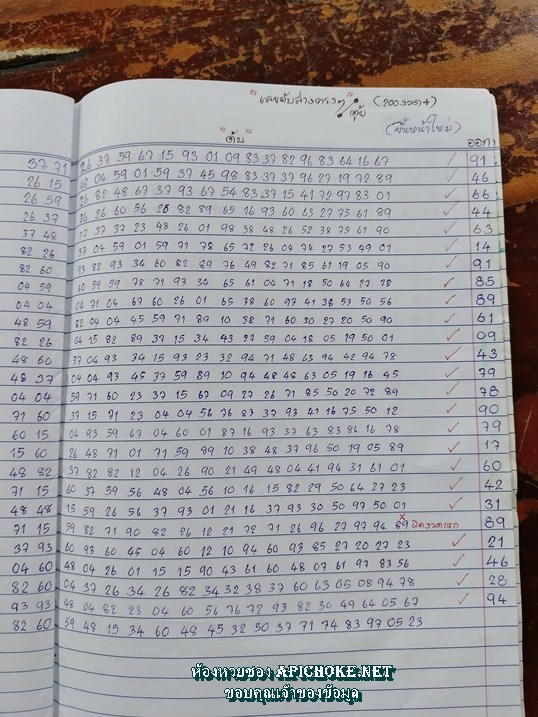 "เลขดับล่างตรงๆ" (200งวด+)
ตุ้ย (ขึ้นหน้าใหม่)
"ดับ" ออก
37 71 26 37 59 67 15 93 01 09 83 37 82 96 83 64 16 67 ✓ 91
26 15 48 04 59 01 59 37 45 98 83 37 37 96 27 19 72 89 ✓ 46
26 59 26 82 48 67 37 93 67 54 83 37 15 41 72 97 83 01 ✓ 66
26 37 26 26 60 56 26 82 89 65 16 93 60 63 27 75 61 89 ✓ 44
37 48 37 37 37 23 48 26 01 98 38 48 26 52 38 75 61 90 ✓ 63
82 26 37 04 59 01 59 71 78 65 72 26 04 74 27 53 49 01 ✓ 14
82 60 93 82 93 34 60 82 89 76 49 82 71 85 61 19 05 90 ✓ 91
04 59 60 59 59 78 71 93 34 65 61 04 71 18 50 64 27 78 ✓ 85
04 04 04 71 04 67 60 26 01 65 38 60 93 41 38 53 50 56 ✓ 89
48 59 82 04 04 45 59 71 89 10 38 71 60 30 27 20 50 90 ✓ 61
82 26 04 15 82 89 37 15 34 43 27 59 04 18 05 19 50 01 ✓ 09
48 60 37 04 93 34 15 93 23 32 94 71 48 63 94 42 94 78 ✓ 43
48 37 04 04 93 45 37 59 89 10 94 48 48 63 05 19 16 45 ✓ 79
04 04 59 71 60 23 37 15 67 09 27 26 71 85 50 20 72 89 ✓ 78
71 60 37 15 71 23 04 04 56 76 83 37 93 41 16 75 50 12 ✓ 90
60 15 04 93 59 67 04 60 01 87 16 93 37 63 83 86 16 78 ✓ 79
15 60 26 48 71 01 71 59 89 10 38 48 37 96 50 19 05 89 ✓ 17
48 82 37 82 82 12 04 26 90 21 49 48 04 41 94 31 61 01 ✓ 60
71 15 60 37 59 56 48 04 56 10 16 15 82 29 50 64 27 23 ✓ 42
48 48 15 59 26 56 37 93 01 21 16 37 93 30 50 97 50 01 ✓ 31
71 15 59 82 71 90 82 26 12 21 72 71 26 96 27 97 94 89 × ผิดงวดแรก 89
37 93 60 93 60 45 04 60 12 10 94 60 93 85 27 20 27 23 ✓ 21
04 60 48 04 26 01 15 15 90 43 61 60 48 07 61 97 83 56 ✓ 46
82 60 04 37 26 34 26 82 34 32 38 37 60 63 05 08 94 78 ✓ 28
93 93 48 04 82 23 04 60 56 76 72 93 82 30 49 64 05 67 ✓ 94
82 60 59 48 15 34 60 48 45 32 50 37 71 74 83 97 05 23
ห้องหวยซอง APICHOKE.NET
ขอบคุณเจ้าของข้อมูล